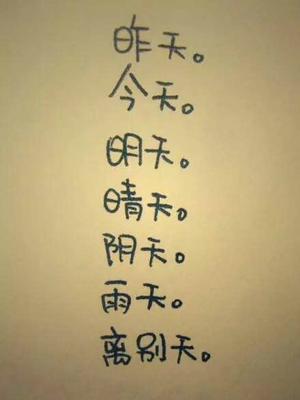 昨天。
今天。
明天。
晴天。
阴天。
雨天。
离别天。